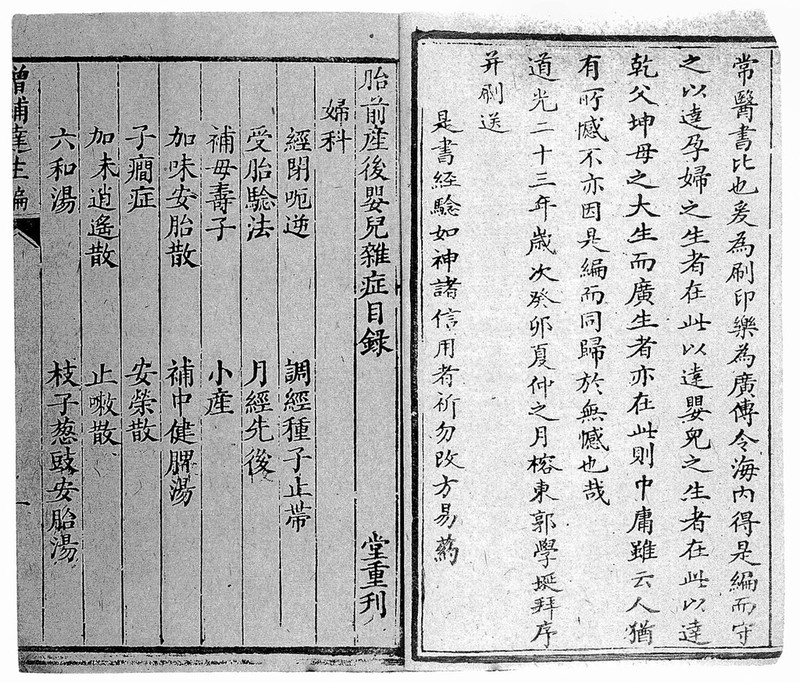 常醫書比也爰為刷印樂為廣傳令海內得是編而守
之以達孕婦之生者在此以達嬰兒之生者在此以達
乾父坤母之大生而廣生者亦在此則中庸雖云人猶
有所憾不亦因是編而同歸於無憾也哉
道光二十三年歲次癸卯夏仲之月榕東郭學埏拜序
并刷送
是書經驗如神諸信用者祈勿改方易药
胎前産後嬰兒雜症目錄 堂重刊
婦科
經閉呃逆 調經種子止帶
受胎驗法 月經先後
補母壽子 小産
加味安胎散 補中健脾湯
子癎症 安榮散
加未逍遙散 止嗽散
六和湯 枝子葱豉安胎湯
增補達生編